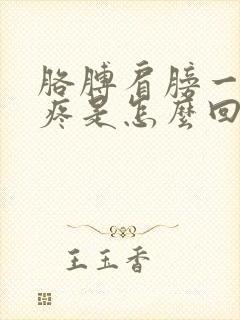 胳膊肩膀一
疼是怎麼回
王玉香